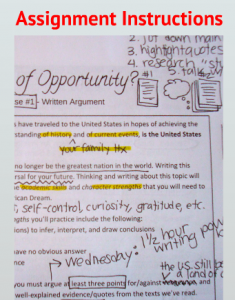 Assignment Instructions
2. jot down main
3. highlight quotes
4. research "st
5. talk w/
#1
of Opportunity?
se #1 - Written Argument
s have traveled to the United States in hopes of achieving the
standing of history and of current events, is the United States
your family hx
no longer be the greatest nation in the world. Writing this
rsal for your future. Thinking and writing about this topic will
he academic skills and character strengths that you will need to
ican Dream.
s, self-control, curiosity, gratitude, etc.
ngths you'll practice include the following:
ions) to infer, interpret, and draw conclusions
ave no obvious answer
nce
→ Wednesday:
1 1/2 hour
writing
the U.S. still
a land of
you must argue at least three points for/against
well-explained evidence/quotes from the texts we've read.